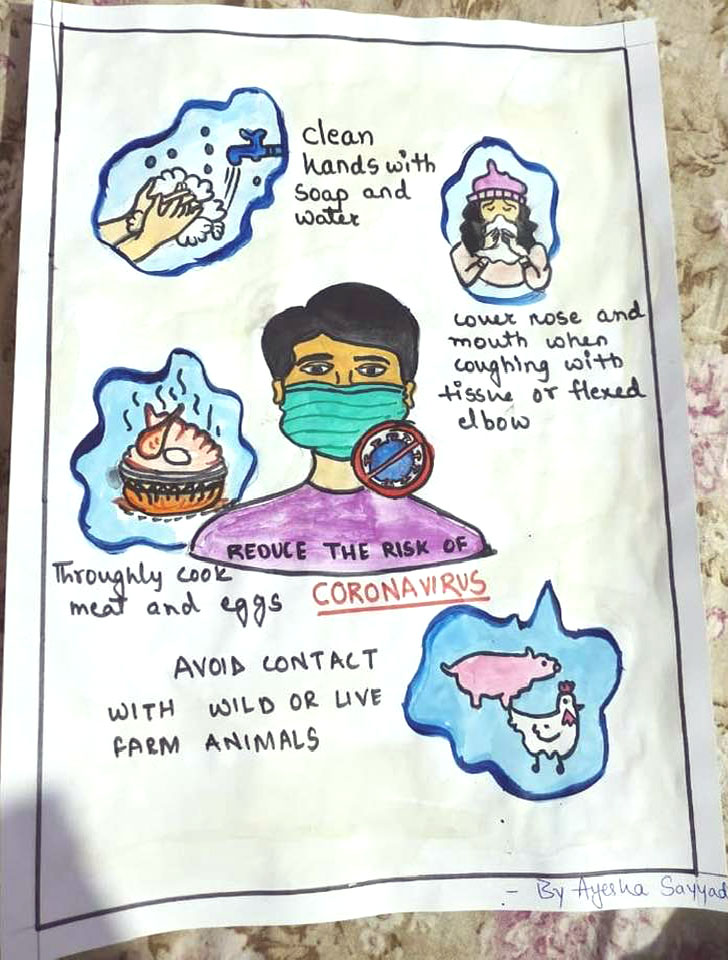 clean
hands with
soap and
water
cover nose and
mouth when
coughing with
tissue or flexed
elbow
REDUCE THE RISK OF
CORONAVIRUS
Throughly cook
meat and eggs
AVOID CONTACT
WITH WILD OR LIVE
FARM ANIMALS
- By Ayesha Sayyad